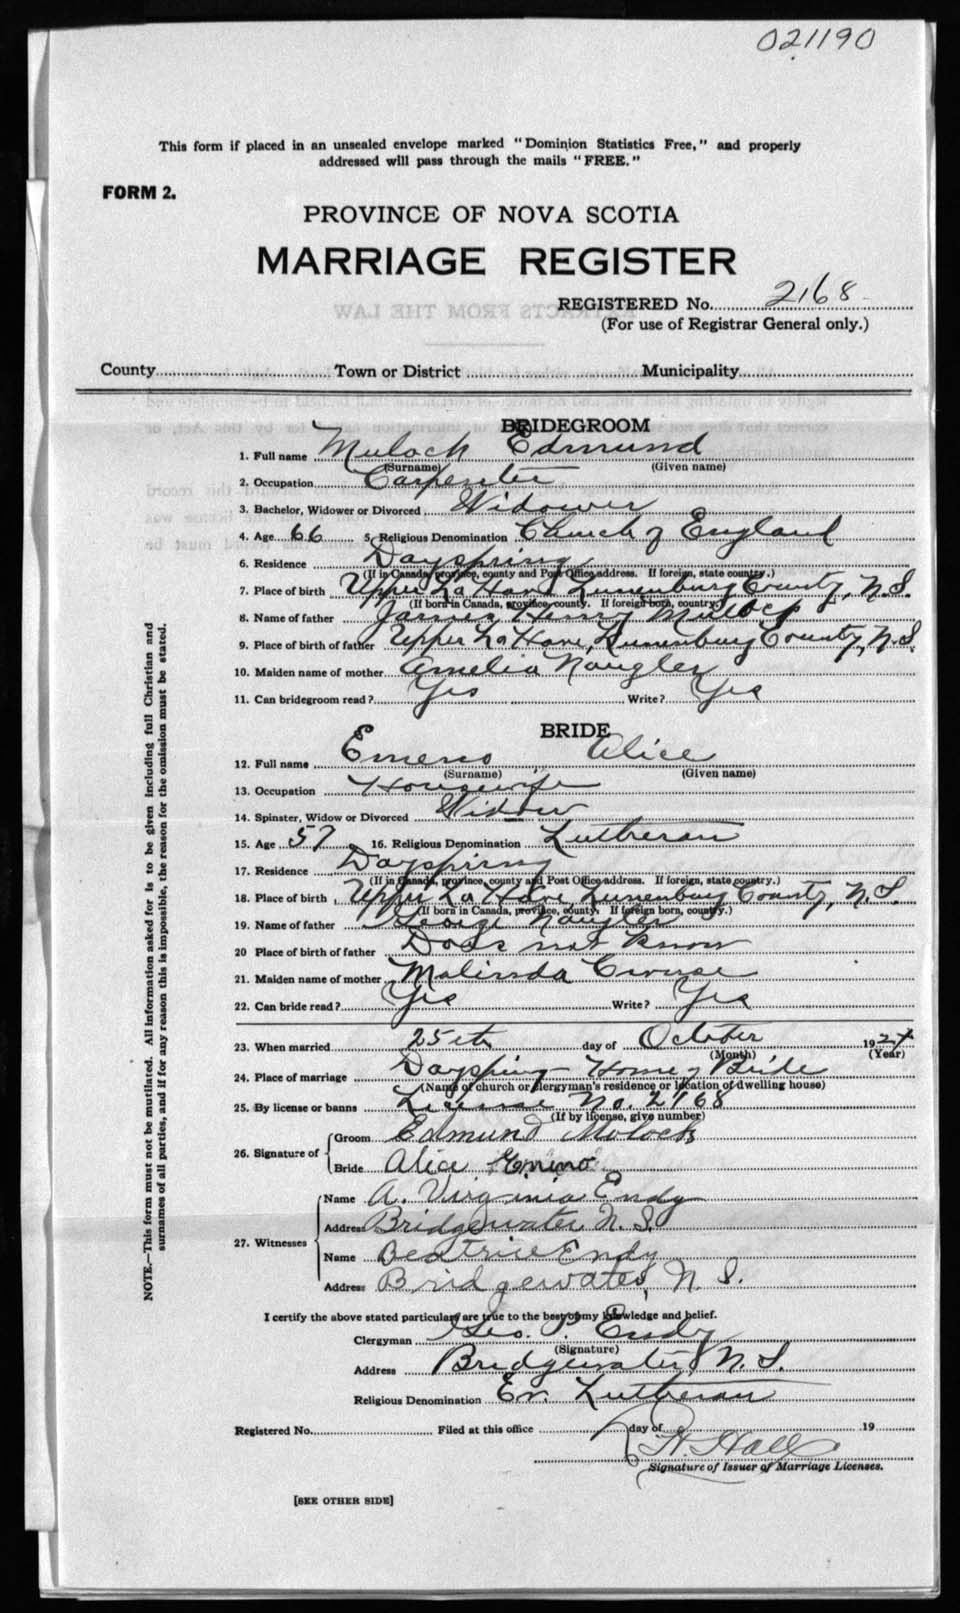 021190
This form if placed in an unsealed envelope marked "Dominion Statistics Free," and properly
addressed will pass through the mails "FREE."
FORM 2.
PROVINCE OF NOVA SCOTIA
MARRIAGE REGISTER
REGISTERED No. 2168
(For use of Registrar General only.)
County Town or District Municipality
BRIDEGROOM
1. Full name Muloch Edmund
(Surname) (Given name)
2. Occupation Carpenter
3. Bachelor, Widower or Divorced Widower
4. Age 66 5. Religious Denomination Church of England
6. Residence Dayspring
(If in Canada, province, county and Post Office address. If foreign, state country.)
7. Place of birth Upper La Have Lunenburg County, N.S.
(If born in Canada, province, county. If foreign born, country.)
8. Name of father James Henry Muloch
9. Place of birth of father Upper La Have, Lunenburg County, N.S.
10. Maiden name of mother Amelia Naugler
11. Can bridegroom read? Yes Write? Yes
BRIDE
12. Full name Emeno Alice
(Surname) (Given name)
13. Occupation Housewife
14. Spinster, Widow or Divorced Widow
15. Age 57 16. Religious Denomination Lutheran
17. Residence Dayspring
(If in Canada, province, county and Post Office address. If foreign, state country.)
18. Place of birth Upper La Have, Lunenburg County, N.S.
(If born in Canada, province, county. If foreign born, country.)
19. Name of father George Naugler
20 Place of birth of father Does not know
21. Maiden name of mother Malinda Crouse
22. Can bride read? Yes Write? Yes
23. When married 25th day of October 1924
(Month) (Year)
24. Place of marriage Dayspring Home of Bride
(Name of church or clergyman's residence or location of dwelling house)
25. By license or banns License No. 2168
(If by license, give number)
26. Signature of
Groom Edmund Moloch
Bride Alice Emino
27. Witnesses
Name A. Virginia Endy
Address Bridgewater N.S.
Name Beatrice Endy
Address Bridgewater, N.S.
I certify the above stated particulars are true to the best of my knowledge and belief.
Clergyman Geo. P. Endy
(Signature)
Address Bridgewater, N.S.
Religious Denomination Ev. Lutheran
Registered No. Filed at this office day of 19
Hall
Signature of Issuer of Marriage Licenses.
[SEE OTHER SIDE]
NOTE.—This form must not be mutilated. All information asked for is to be given including full Christian and
surnames of all parties, and if for any reason this is impossible, the reason for the omission must be stated.